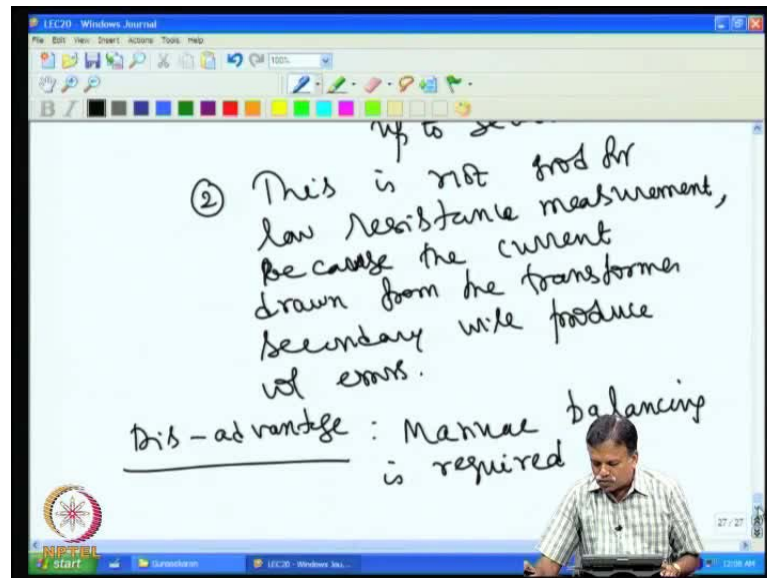 LEC20 - Windows Journal
File Edit View Insert Actions Tools Help
100%
B I
up to
② This is not good for
low resistance measurement,
because the current
drawn from the transformer
secondary will produce
errors.
Dis-advantage : Manual balancing
is required
27 / 27
NPTEL
start
Gunasekaran
LEC20 - Windows Jou...
12:08 AM